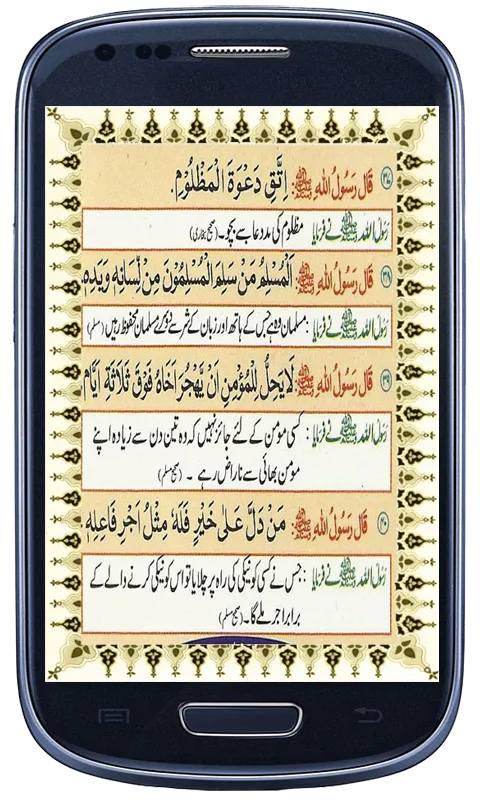 ۳۷ قَالَ رَسُوْلُ اللهِ ﷺ: اِتَّقِ دَعْوَةَ الْمَظْلُوْمِ.
رسول اللہ ﷺ نے فرمایا مظلوم کی بددعا سے بچو۔ (صحیح بخاری)
۳۸ قَالَ رَسُوْلُ اللهِ ﷺ: اَلْمُسْلِمُ مَنْ سَلِمَ الْمُسْلِمُوْنَ مِنْ لِّسَانِهٖ وَيَدِهٖ
رسول اللہ ﷺ نے فرمایا: مسلمان وہ ہے جس کے ہاتھ اور زبان کے شر سے دوسرے مسلمان محفوظ رہیں (مسلم)
۳۹ قَالَ رَسُوْلُ اللهِ ﷺ: لَا يَحِلُّ لِلْمُؤْمِنِ اَنْ يَّهْجُرَ اَخَاهُ فَوْقَ ثَلَاثَةِ اَيَّامٍ
رسول اللہ ﷺ نے فرمایا: کسی مومن کے لئے جائز نہیں کہ وہ تین دن سے زیادہ اپنے
مومن بھائی سے ناراض رہے ۔ (صحیح مسلم)
۴۰ قَالَ رَسُوْلُ اللهِ ﷺ: مَنْ دَلَّ عَلٰى خَيْرٍ فَلَهٗ مِثْلُ اَجْرِ فَاعِلِهٖ
رسول اللہ ﷺ نے فرمایا: جس نے کسی کو نیکی کی راہ پر چلایا تو اس کو نیکی کرنے والے کے
برابر اجر ملے گا۔ (صحیح مسلم)